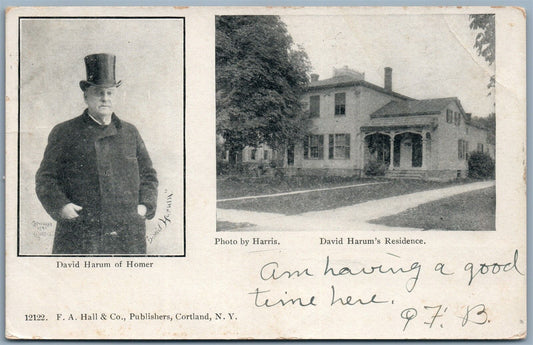 "David Harum"
David Harum of Homer
Photo by Harris. David Harum's Residence.
Am having a good
time here.
12122. F. A. Hall & Co., Publishers, Cortland, N. Y.